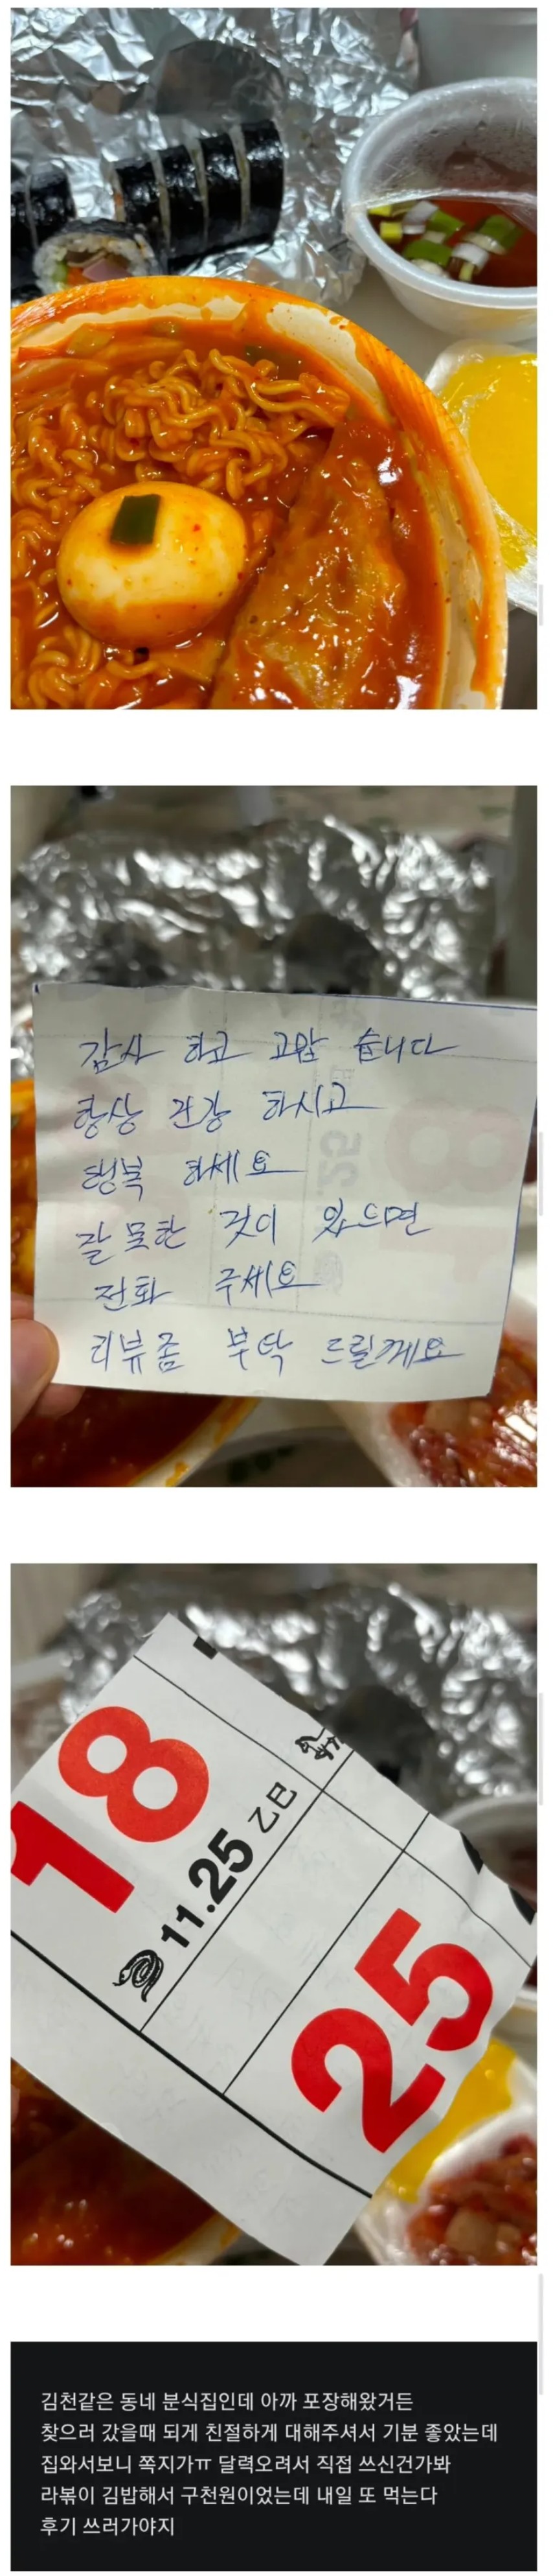 감사 하고 고맙 습니다
항상 건강 하시고
행복 하세요
잘못한 것이 있으면
전화 주세요
리뷰좀 부탁 드릴께요
18
11.25 乙巳
25
김천같은 동네 분식집인데 아까 포장해왔거든
찾으러 갔을때 되게 친절하게 대해주셔서 기분 좋았는데
집와서보니 쪽지가ㅠ 달력오려서 직접 쓰신건가봐
라볶이 김밥해서 구천원이었는데 내일 또 먹는다
후기 쓰러가야지